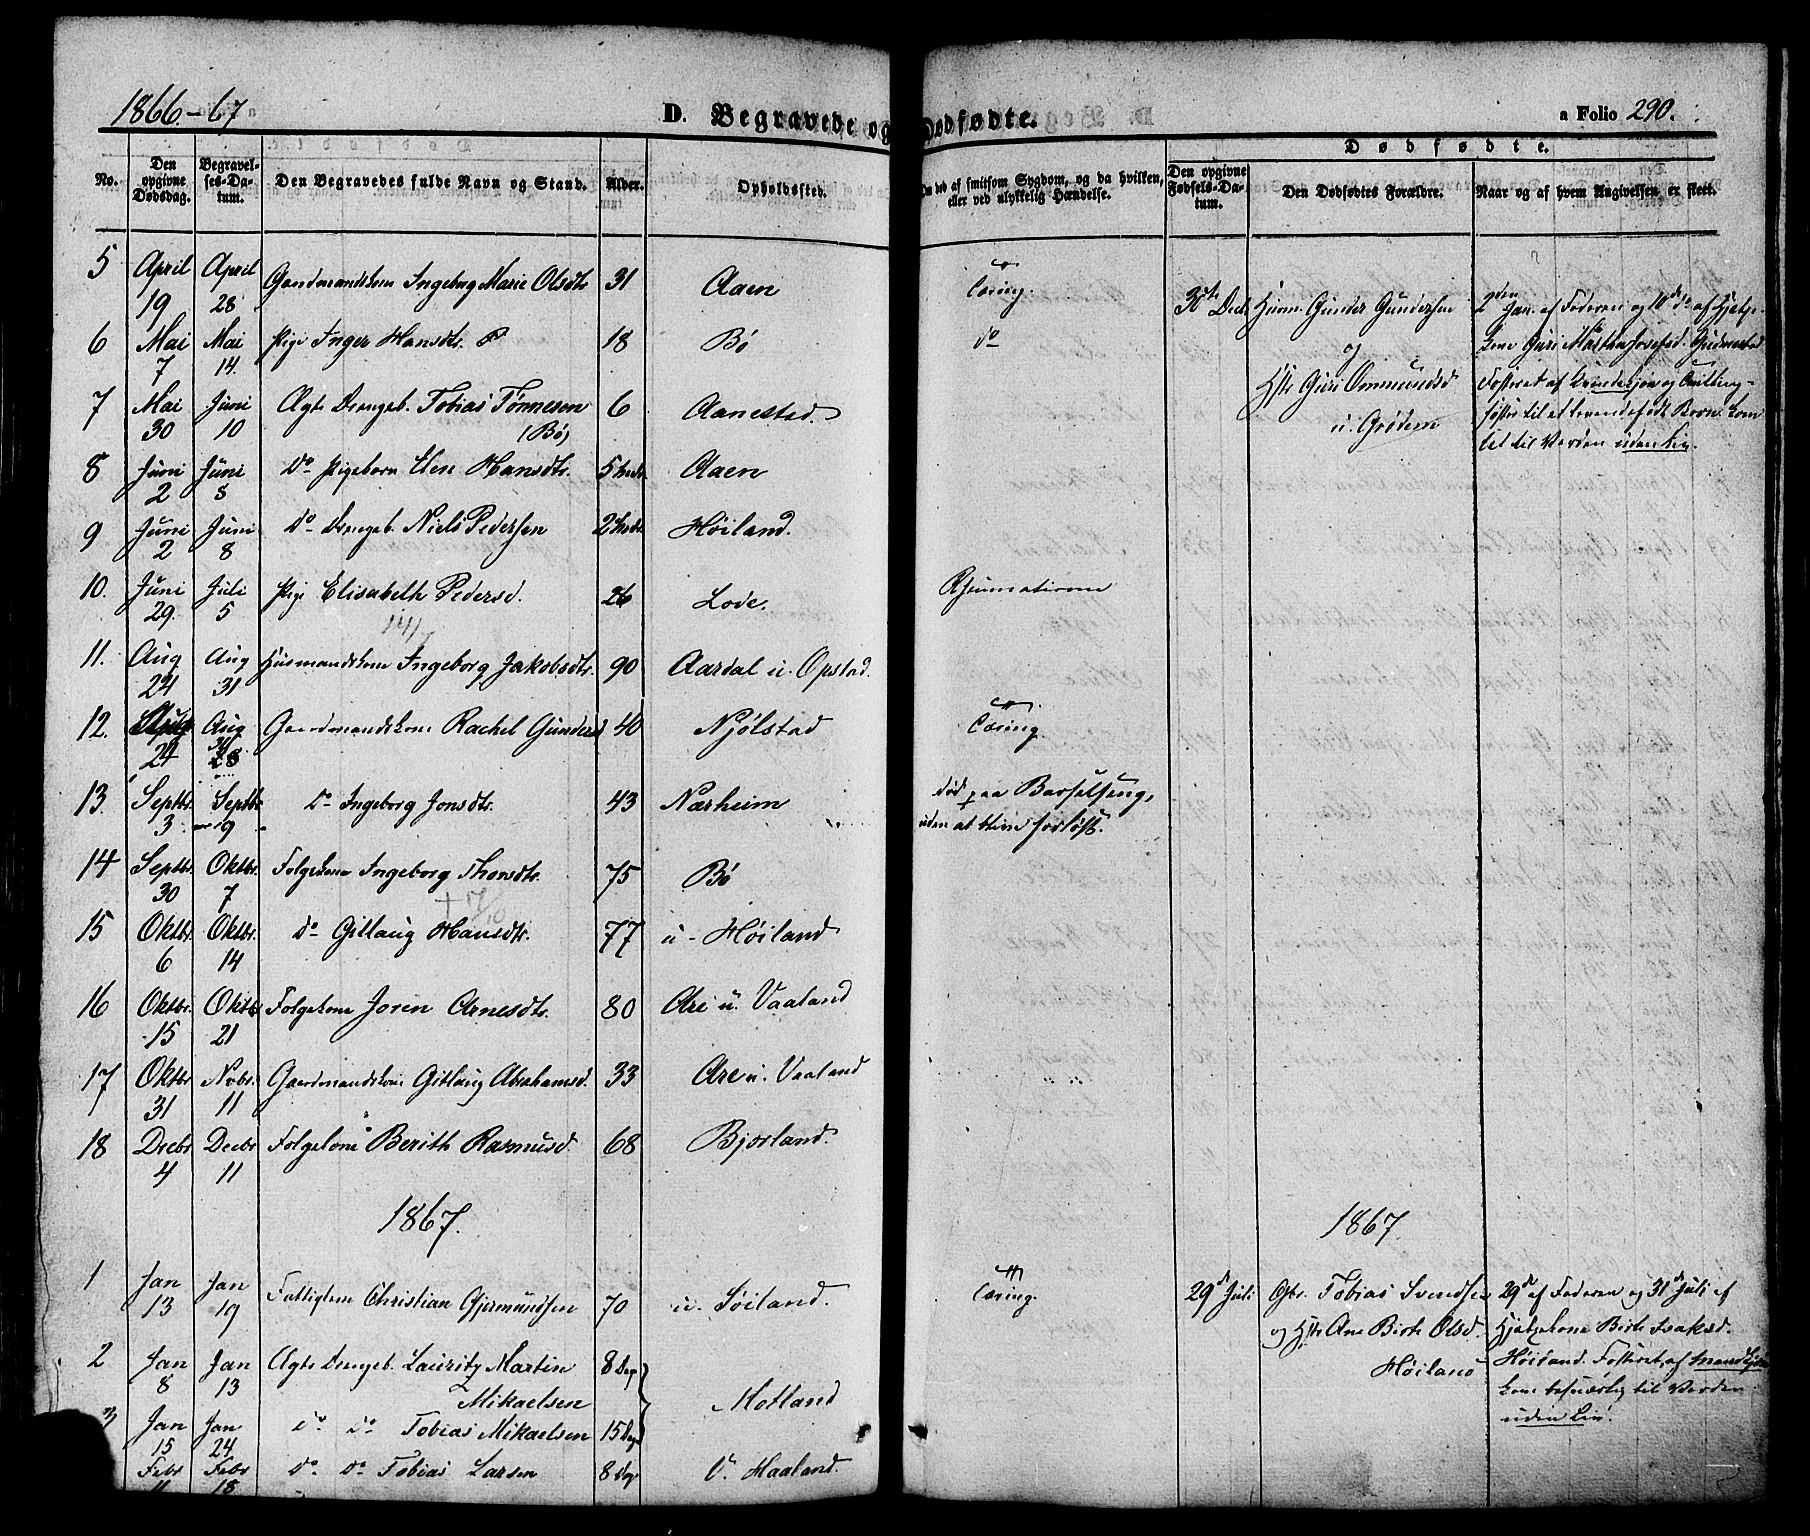 1866-67
D. Begravede og Dødfødte.
a Folio 290.
No.
Den opgivne Dødsdag.
Begravelses-Datum.
Den Begravedes fulde Navn og Stand.
Alder.
Opholdssted.
Om død af smitsom Sygdom, og da hvilken, eller ved ulykkelig Hændelse.
Dødfødte.
Den opgivne Fødsels-Datum.
Den Dødfødtes Forældre.
Naar og af hvem Angivelsen er skeet.
5 April 19 April 28 Gaardmandskone Ingeborg Marie Olsdtr 31 Aaen Tæring.
6 Mai 7 Mai 14. Pige Inger Hansdtr. 18 Bø do
7 Mai 30 Juni 10 Ægte Drengeb. Tobias Tønnesen (Bø) 6 Aanestad.
8 Juni 2 Juni 8 Do Pigebarn Elen Hansdtr. 5 Aaen
9 Juni 2 Juni 8 Do Drengeb. Niels Pedersen 2 Høiland.
10. Juni 29. Juli 5 Pige Elisabeth Pedersd. 26 Lode.
11. Aug 24 Aug 31 Huusmandskone Ingeborg Jakobsdtr. 90 Aardal u. Opstad.
12. Aug 24 Aug Gaardmandskone Rachel Gundersd 40 Njølstad Tæring.
13. Septbr. 3 Septbr 9 Do Ingeborg Jonsdtr. 43 Nærheim død paa Barselseng, uden at blive forløst.
14 Septbr. 30 Oktbr. 7 Folgekone Ingeborg Thorsdtr. 75 Bø
15 Oktbr. 6 Oktbr. 14 Do Gitlaug Hansdtr. 77 u- Høiland
16 Oktbr. 15 Oktbr 21 Folgekone Joren Arnesdtr. 80 Are u. Vaaland
17 Oktbr 31 Novbr. 11 Gaardmandskone Gitlaug Abrahamsd. 33 Are u. Vaaland
18 Decbr 4 Decbr 11 Folgekone Berith Rasmusd 68 Bjorland.
30te Decbr Huusm. Gunder Gundersen
og
Hstr Guri Ommundsd
u. Grødem
2den Jan. af Faderen og 10de do af Hjelpe-
kone Guri Martha Josefsd. Gudmestad
Fosteret af Kvindekjøn og Tvilling-
søster til et levendefødt Barn. Kom
til til Verden uden Liv.
1867.
1867
1 Jan 13 Jan 19 Fattiglem Christian Gjermundsen 70 u. Søiland. Tæring.
2 Jan 8 Jan 13 Ægte Drengeb. Lauritz Martin Mikaelsen 8 Dag Motland
3 Jan 15 Jan 24 Do Do Tobias Mikaelsen 15 Dag
Febr 11 Febr 18 Do Do Tobias Larsen 8 Dag V. Haaland.
29de Juli Gbr. Tobias Svendsen
og Hstr Ane Birte Olsd.
Høiland
29de af Faderen og 31de Juli af
Hjelpekone Birte Isaksd.
Høiland. Fosteret, af Mandkjøn
kom besværlig til Verden
uden Liv.